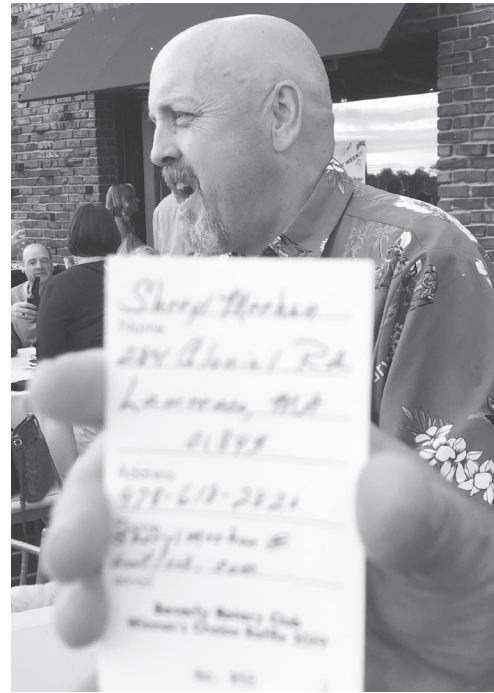 Sheryl Meehan
Name
Colonial Rd
Lawrence, MA
01843
Address
sherylmeehan @
outlook.com
email
Beverly Rotary Club
Winner's Choice Raffle 2019
No.